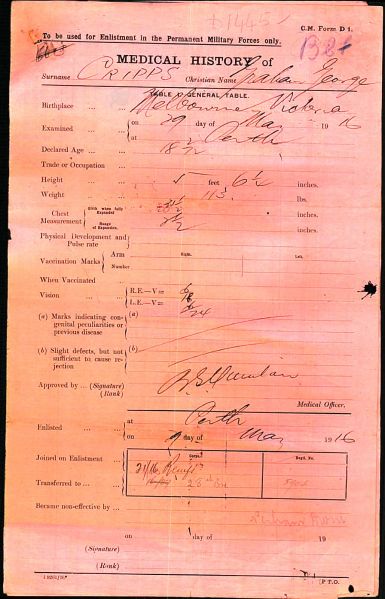 C.M. Form D 1.
To be used for Enlistment in the Permanent Military Forces only.
MEDICAL HISTORY of
Surname CRIPPS Christian Name Graham George
TABLE I.—GENERAL TABLE.
Birthplace Melbourne Victoria
Examined on 29 day of May 1916
at Perth
Declared Age 18
Trade or Occupation
Height 5 feet 6½ inches.
Weight 113 lbs.
Chest Measurement Girth when fully Expanded inches.
Range of Expansion. 2½ inches.
Physical Development and Pulse rate
Vaccination Marks Arm Right. Left.
Number
When Vaccinated
Vision R.E.—V= 6/18
L.E.—V= 6/24
(a) Marks indicating congenital peculiarities or previous disease (a)
(b) Slight defects, but not sufficient to cause rejection (b)
Approved by (Signature)
(Rank) Medical Officer.
Enlisted at Perth
on 9 day of May 1916
Corps. Regtl. No.
Joined on Enlistment
Transferred to 28th Bn
Became non-effective by
on day of 19
(Signature)
(Rank)
P.T.O.